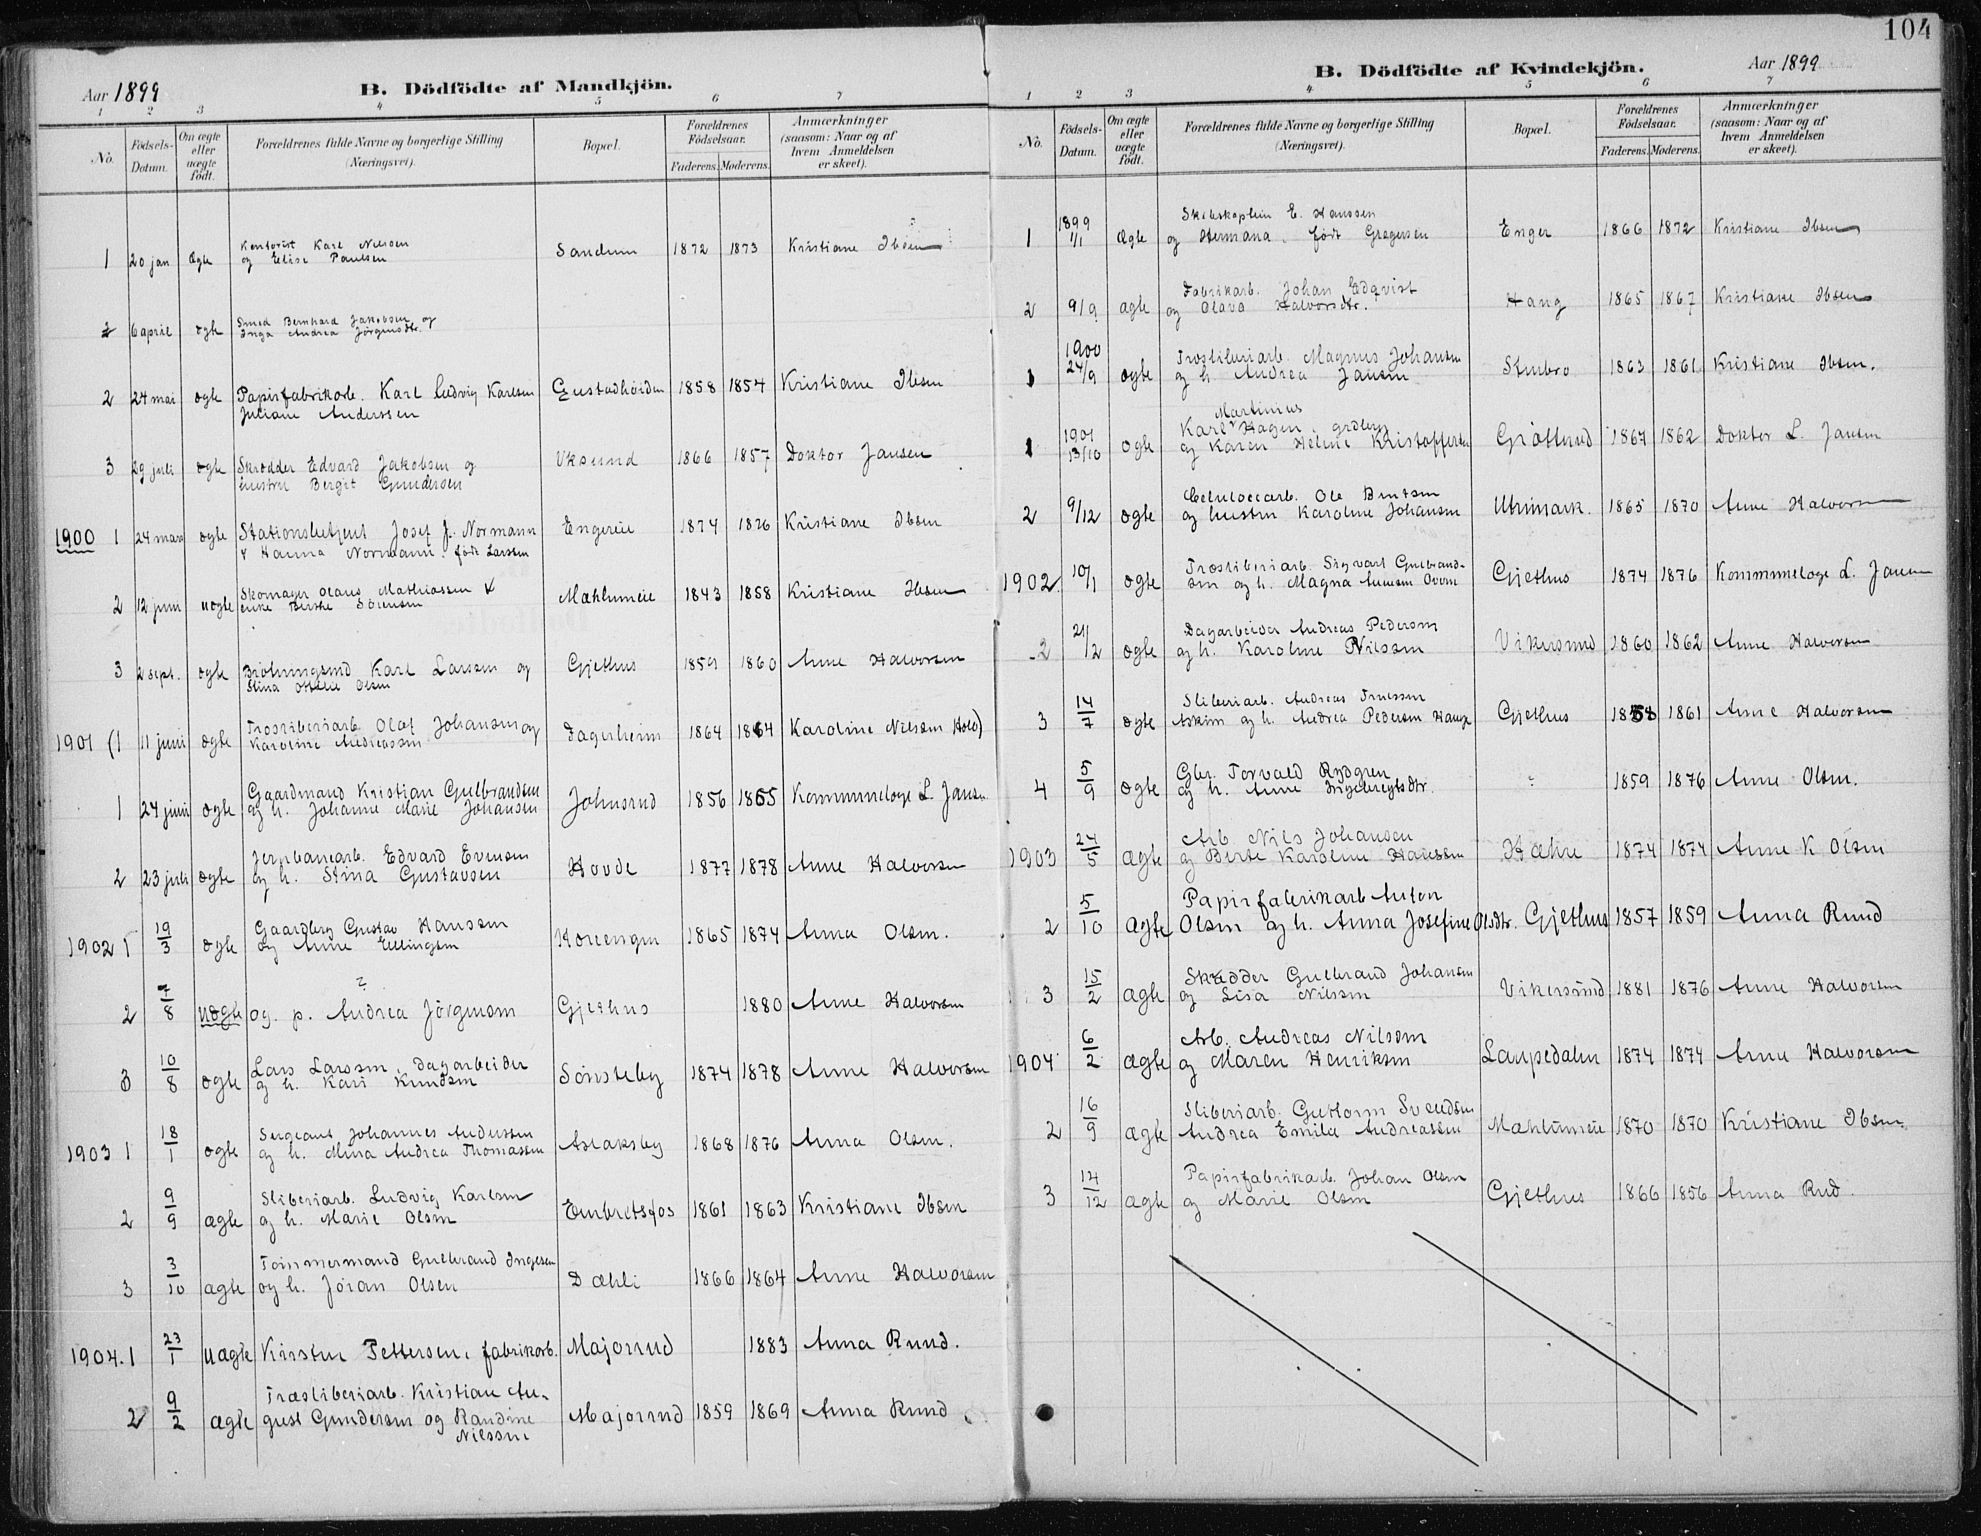 104
Aar 1899
B. Dödfödte af Mandkjön.
1 2 3 4 5 6 7
No.
Födsels-Datum.
Om ægte eller uægte födt.
Forældrenes fulde Navne og borgerlige Stilling (Næringsvei).
Bopæl.
Forældrenes Födselsaar.
Faderens. Moderens.
Anmærkninger (saasom: Naar og af hvem Anmeldelsen er skeet).
1 20 jan Ægte Karl Nilsen Sandum 1872 1873 Kristiane Ibsen
og Elise Paulsen
2 6 april ægte Smed Bernhard Jakobsen og
Inga Andrea Jörgensdtr.
2 24 mai ægte Papirfabrikarb. Karl Ludvig Karlsen Gustadheiden 1858 1854 Kristiane Ibsen
Juliane Anderssen
3 29 juli ægte Skrædder Edvard Jakobsen og Viksund 1866 1857 Doktor Jansen
hustru Bergit Gundersen
1900 1 24 mars ægte Stationsbetjent Josef J. Normann Engereie 1874 1876 Kristiane Ibsen
& Hanna Normann, födt Larsen
2 12 juni uægte Skomager Olaus Mathiassen & Mæhlumeie 1843 1858 Kristiane Ibsen
enke Birthe Sörensen
3 2 sept. ægte Karl Larsen og Gjethus 1859 1860 Anne Halvorsen
Stina Ottilie Olsen
1901 (1 11 juni ægte Træsliberiarb. Olaf Johansen og Fagerheim 1864 1864 Karoline Nilsen Hold)
Karoline Andreassen
1 24 juni ægte Gaardmand Kristian Gulbrandsen Johnsrud 1856 1865 Kommunelæge L. Jansen
og h. Johanne Marie Johansen
2 23 juli ægte Jernbanearb. Edvard Evensen Hovde 1877 1878 Anne Halvorsen
og h. Stina Gustavsen
1902 1 19/3 ægte Gaardbrg Gustav Hanssen Korsengen 1865 1874 Anna Olsen.
og Anne Ellingsen
2 7/8 uægte ?
og p. Andrea Jörgensen Gjethus 1880 Anne Halvorsen
3 10/8 ægte Lars Larssen, dagarbeider Sönsteby 1874 1878 Anne Halvorsen
og h. Kari Knudsen
1903 1 18/1 ægte Sergeant Johannes Anderssen Aslaksby 1868 1876 Anna Olsen.
og h. Mina Andrea Thomassen
2 9/9 ægte Sliberiarb. Ludvig Karlsen Embretsfos 1861 1863 Kristiane Ibsen
og h. Marie Olsen
3 3/10 ægte Tömmermand Gulbrand Ingesen Dæhli 1866 1864 Anne Halvorsen
og h. Jöran Olsen
1904. 1 23/1 uægte Kirsten Pettersen, fabrikarb. Majorrud 1883 Anna Ruud.
2 9/2 ægte Træsliberiarb. Kristian Au-
gust Gundersen og Randine Majorrud 1859 1869 Anna Ruud
Nilssen
Aar 1899
B. Dödfödte af Kvindekjön.
1 2 3 4 5 6 7
No.
Födsels-Datum.
Om ægte eller uægte födt.
Forældrenes fulde Navne og borgerlige Stilling (Næringsvei).
Bopæl.
Forældrenes Födselsaar.
Faderens. Moderens.
Anmærkninger (saasom: Naar og af hvem Anmeldelsen er skeet).
1 1899 1/1 Ægte Skibskaptein E. Hanssen
og Hermana, födt Gregersen Enger 1866 1872 Kristiane Ibsen
2 9/9 ægte Fabrikarb. Johan Edqvist
og Olava Halvorsdtr. Haug 1865 1867 Kristiane Ibsen
1 1900 24/9 ægte Træsliberiarb. Magnus Johansen
og h. Andrea Jansen Stubro 1863 1861 Kristiane Ibsen.
Martinius
1 1901 13/10 ægte Karl Hagen, grdbrg
og Karen Helene Kristoffersen Gröttrud 1867 1862 Doktor L. Jansen
2 9/12 ægte Celulosearb. Ole Berntsen
og hustru Karoline Johansen Utnimark. 1865 1870 Anne Halvorsen
1902 10/1 ægte Træsliberiarb. Sigvart Gulbrand-
sen og h. Magna Gjethus 1874 1876 Kommunelæge L. Jansen
2 21/2 ægte Dagarbeider Andreas Pedersen
og h. Karoline Nilssen Vikersund 1860 1862 Anne Halvorsen
3 14/7 ægte Sliberiarb. Andreas
Askim og h. Andrea Pedersen Gjethus 1858 1861 Anne Halvorsen
4 5/9 ægte Gbr. Torvald Rydgren
og h. Anne Ingebregtsdtr. 1859 1876 Anne Olsen.
1903 24/5 ægte Arb. Nils Johansen
og Berte Karoline Hanssen Hæhre 1874 1874 Anne K Olsen
2 5/10 Ægte Papirfabrikarb Anton
Olsen og h. Anna Josefine Olsdtr. Gjethus 1857 1859 Anna Ruud
3 15/2 ægte Skrædder Gulbrand Johansen
og Lisa Nilsen Vikersund 1881 1876 Anne Halvorsen
1904 6/2 ægte Arb. Andreas Nilsen
og Maren Henriksen Laupedalen 1874 1874 Anne Halvorsen
2 16/9 ægte Sliberiarb. Guttorm Svendsen
Andrea Emilie Andreassen Mæhlumeie 1870 1870 Kristiane Ibsen
3 14/12 ægte Papirfabrikarb. Johan Olsen
og Marie Olsen Gjethus 1866 1856 Anna Rud.